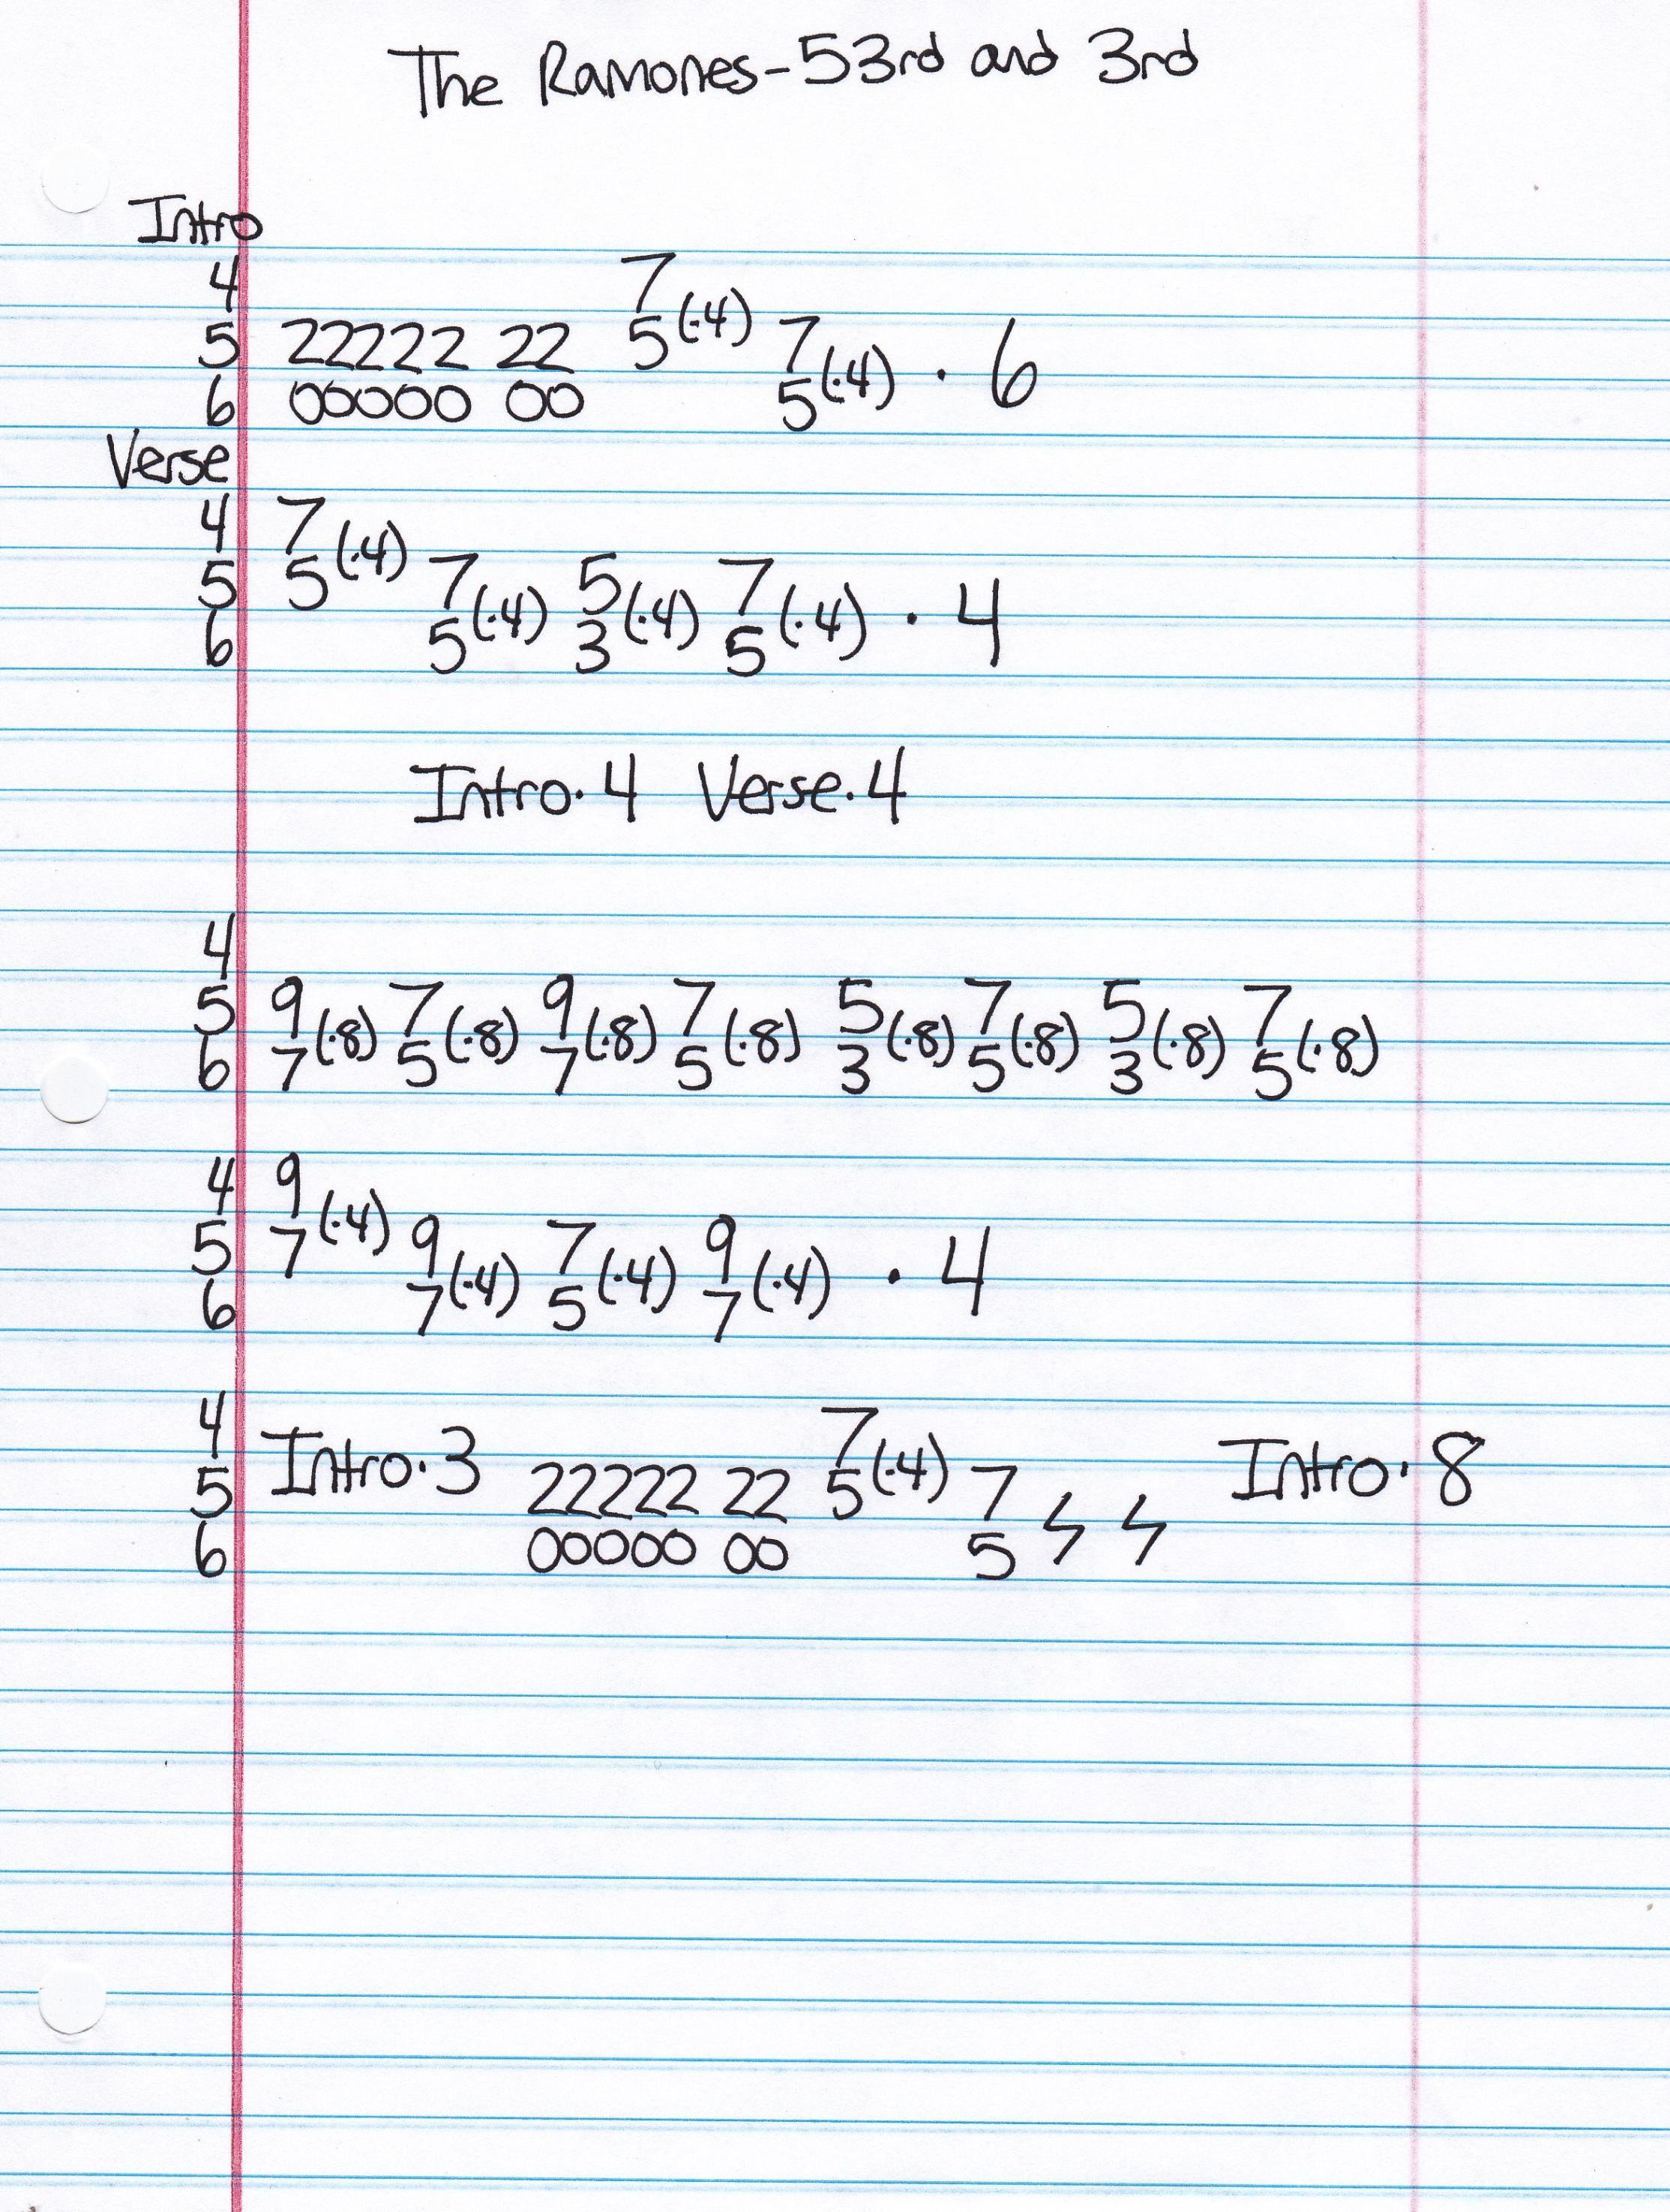 The Ramones-53rd and 3rd
Intro
4 7
5 22222 22 5(·4) 7
6 00000 00 5(·4) · 6
Verse
4 7
5 5(·4) 7 5 7
6 5(·4) 3(·4) 5(·4) · 4
Intro·4 Verse·4
4
5 9 7 9 7 5 7 5 7
6 7(·8) 5(·8) 7(·8) 5(·8) 3(·8) 5(·8) 3(·8) 5(·8)
4 9
5 7(·4) 9 7 9
6 7(·4) 5(·4) 7(·4) · 4
4 Intro·3 7 Intro·8
5 22222 22 5(·4) 7
6 00000 00 5